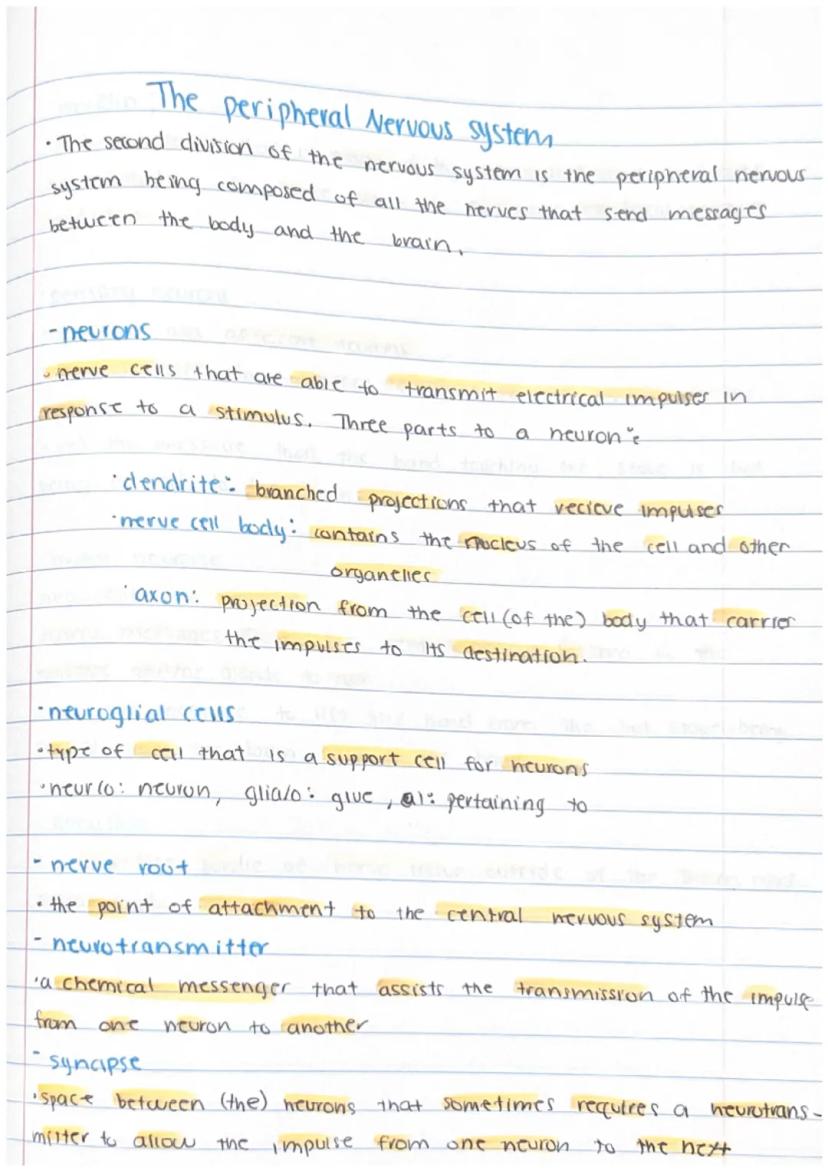 The peripheral Nervous system
· The second division of the nervous system is the peripheral nervous
system being composed of all the nerves that send messages
between the body and the brain.
- neurons
· nerve cells that are able to transmit electrical impulses in
response to a stimulus. Three parts to a neuron:
· dendrite: branched projections that recieve impulses
· nerve cell body: contains the nucleus of the cell and other
organelles
· axon: projection from the cell (of the) body that carries
the impulses to its destination.
· neuroglial cells
· type of cell that is a support cell for neurons
· neur/o: neuron, glia/o: glue, al: pertaining to
- nerve root
· the point of attachment to the central nervous system
- neurotransmitter
· a chemical messenger that assists the transmission of the impulse
from one neuron to another
- synapse
· space between (the) neurons that sometimes requires a neurotrans-
mitter to allow the impulse from one neuron to the next